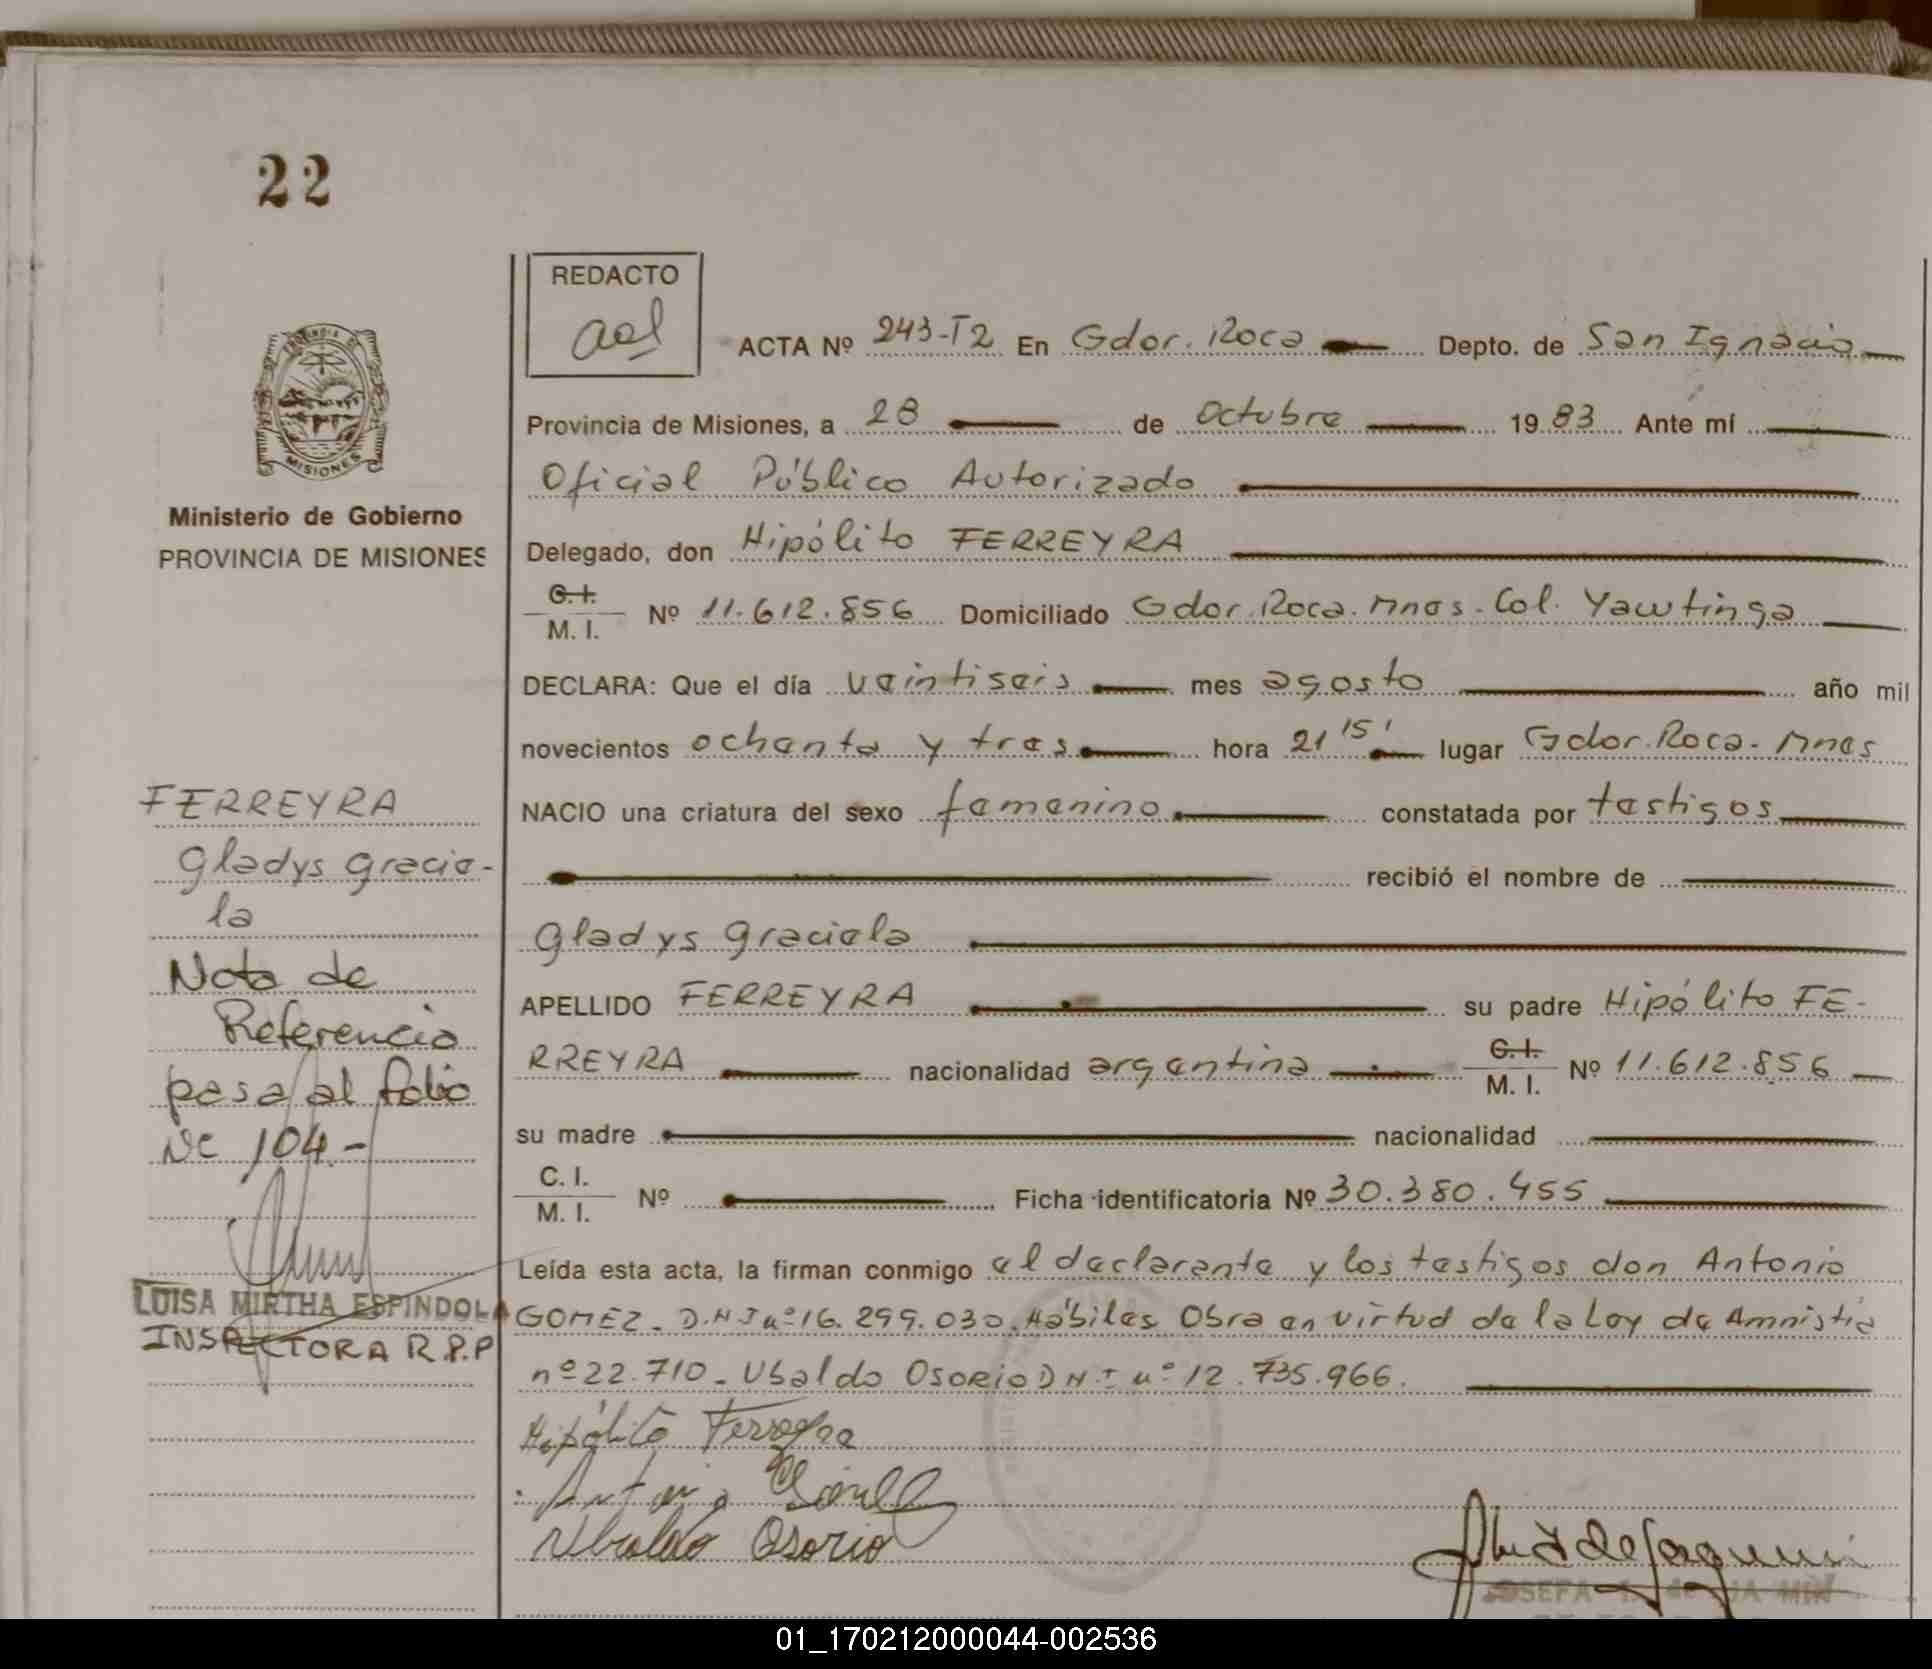 22
REDACTO
ACTA Nº 243-T2 En Gdor. Roca Depto. de San Ignacio
Provincia de Misiones, a 28 de Octubre 1983 Ante mí
Oficial Público Autorizado
MISIONES
Ministerio de Gobierno
PROVINCIA DE MISIONES
Delegado, don Hipólito FERREYRA
C.I.
M. I. Nº 11.612.856 Domiciliado Gdor. Roca. Mnes. Col. Yawtinga
DECLARA: Que el día veintiseis mes agosto año mil
novecientos ochenta y tres hora 21 15' lugar Gdor. Roca. Mnes
NACIO una criatura del sexo femenino constatada por testigos
recibió el nombre de
Gladys Graciela
APELLIDO FERREYRA su padre Hipólito FE-
RREYRA nacionalidad argentina C.I.
M. I. Nº 11.612.856
su madre nacionalidad
C. I.
M. I. Nº Ficha identificatoria Nº 30.380.455
Leída esta acta, la firman conmigo el declarante y los testigos don Antonio
GOMEZ. D.N.I nº 16.299.030. Hábiles Obra en virtud de la Ley de Amnistia
nº 22.710. Ubaldo OSORIO DNI nº 12.735.966.
Hipólito Ferreyra
Antonio
Ubaldo Osorio
FERREYRA
Gladys Gracie-
la
Nota de
Referencia
pasa al folio
Nº 104.-
LUISA MIRTHA ESPINDOLA
INSPECTORA R.P.P
01_170212000044-002536